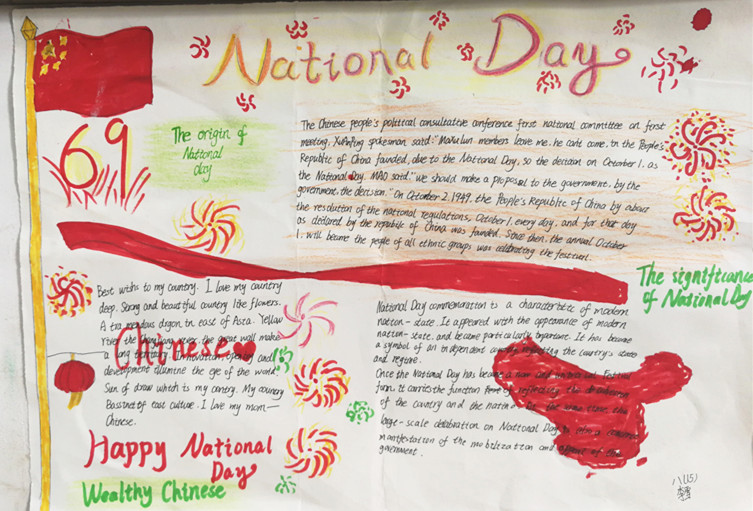 National Day
69
The origin of
National
day
The Chinese people's political consultative conference first national committee on first
meeting, spokesman said: "Maxulun members leave me, he can't come, in the People's
Republic of China founded, due to the National Day, so the decision on October 1, as
the National Day. MAO said, "we should make a proposal to the government, by the
government, the decision." On October 2, 1949, the People's Republic of China by about
the resolution of the national regulations, October 1, every day, and for that day
as declared by the republic of China was founded. Since then, the annual October
1, will become the people of all ethnic groups was celebrating the festival.
The significance
of National Day
Best wishs to my country. I love my country
deep. Strong and beautiful country like flowers.
A dragon in east of Asia. Yellow
river the river, the great wall make
a long and
development illumine the eye of the world.
Sun of draw which is my contery. My country
of east culture. I love my mum—
Chinese.
Chinese
Happy National
Day
Wealthy Chinese
National Day commemoration is a characteristic of modern
nation-state. It appeared with the appearance of modern
nation-state, and became particularly important. It has become
a symbol of an independent country, reflecting the country's state
and regime.
Once the National Day has became a new and
form, it carries the function of reflecting the
of the country and the nation. In the same time, the
large-scale celebration on National Day is also a
manifestation of the mobilization and appeal of the
government.
八(15)